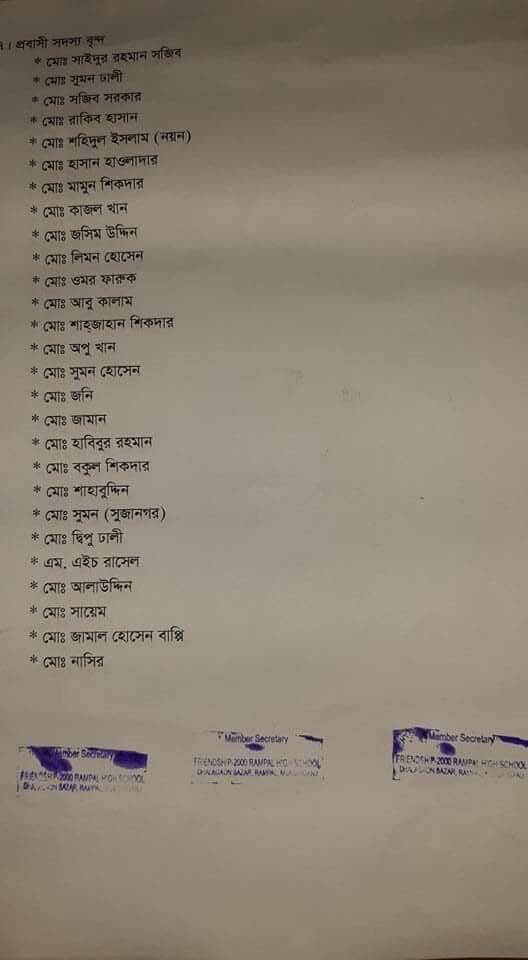 । প্রবাসী সদস্য বৃন্দ
* মোঃ সাইদুর রহমান সজিব
* মোঃ সুমন ঢালী
* মোঃ সজিব সরকার
* মোঃ রাকিব হাসান
* মোঃ শহিদুল ইসলাম (নয়ন)
* মোঃ হাসান হাওলাদার
* মোঃ মামুন শিকদার
* মোঃ কাজল খান
* মোঃ জসিম উদ্দিন
* মোঃ লিমন হোসেন
* মোঃ ওমর ফারুক
* মোঃ আবু কালাম
* মোঃ শাহ্জাহান শিকদার
* মোঃ অপু খান
* মোঃ সুমন হোসেন
* মোঃ জনি
* মোঃ জামান
* মোঃ হাবিবুর রহমান
* মোঃ বকুল শিকদার
* মোঃ শাহাবুদ্দিন
* মোঃ সুমন (সুজানগর)
* মোঃ দ্বিপু ঢালী
* এম. এইচ রাসেল
* মোঃ আলাউদ্দিন
* মোঃ সায়েম
* মোঃ জামাল হোসেন বাপ্পি
* মোঃ নাসির
Member Secretary
FRIENDSHIP-2000 RAMPAL HIGH SCHOOL
BAZAR, RAMPAL,
Member Secretary
FRIENDSHIP-2000 RAMPAL HIGH SCHOOL
BAZAR, RAMPAL,
Member Secretary
FRIENDSHIP-2000 RAMPAL HIGH SCHOOL
BAZAR,